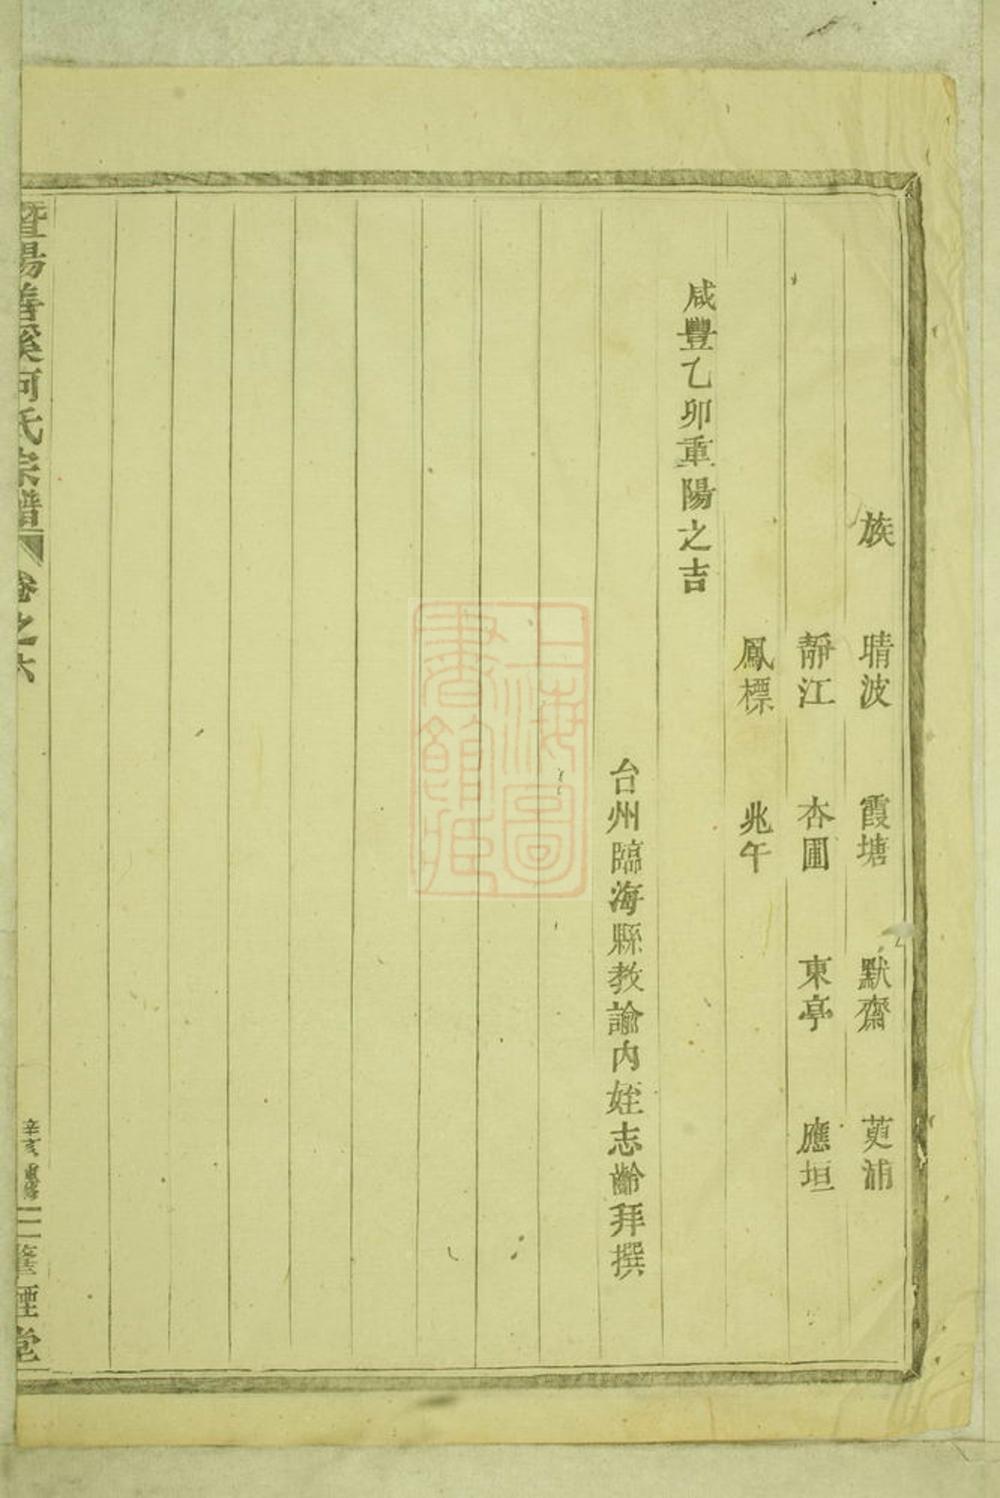 族　晴波　霞塘　默齋　萸浦
靜江　杏圃　東亭　應垣
鳳標　兆午
咸豐乙卯重陽之吉
台州臨海縣教諭内姪志齡拜撰
暨陽善溪何氏宗譜　卷之六
辛亥重修
筆經堂
上海圖書館藏